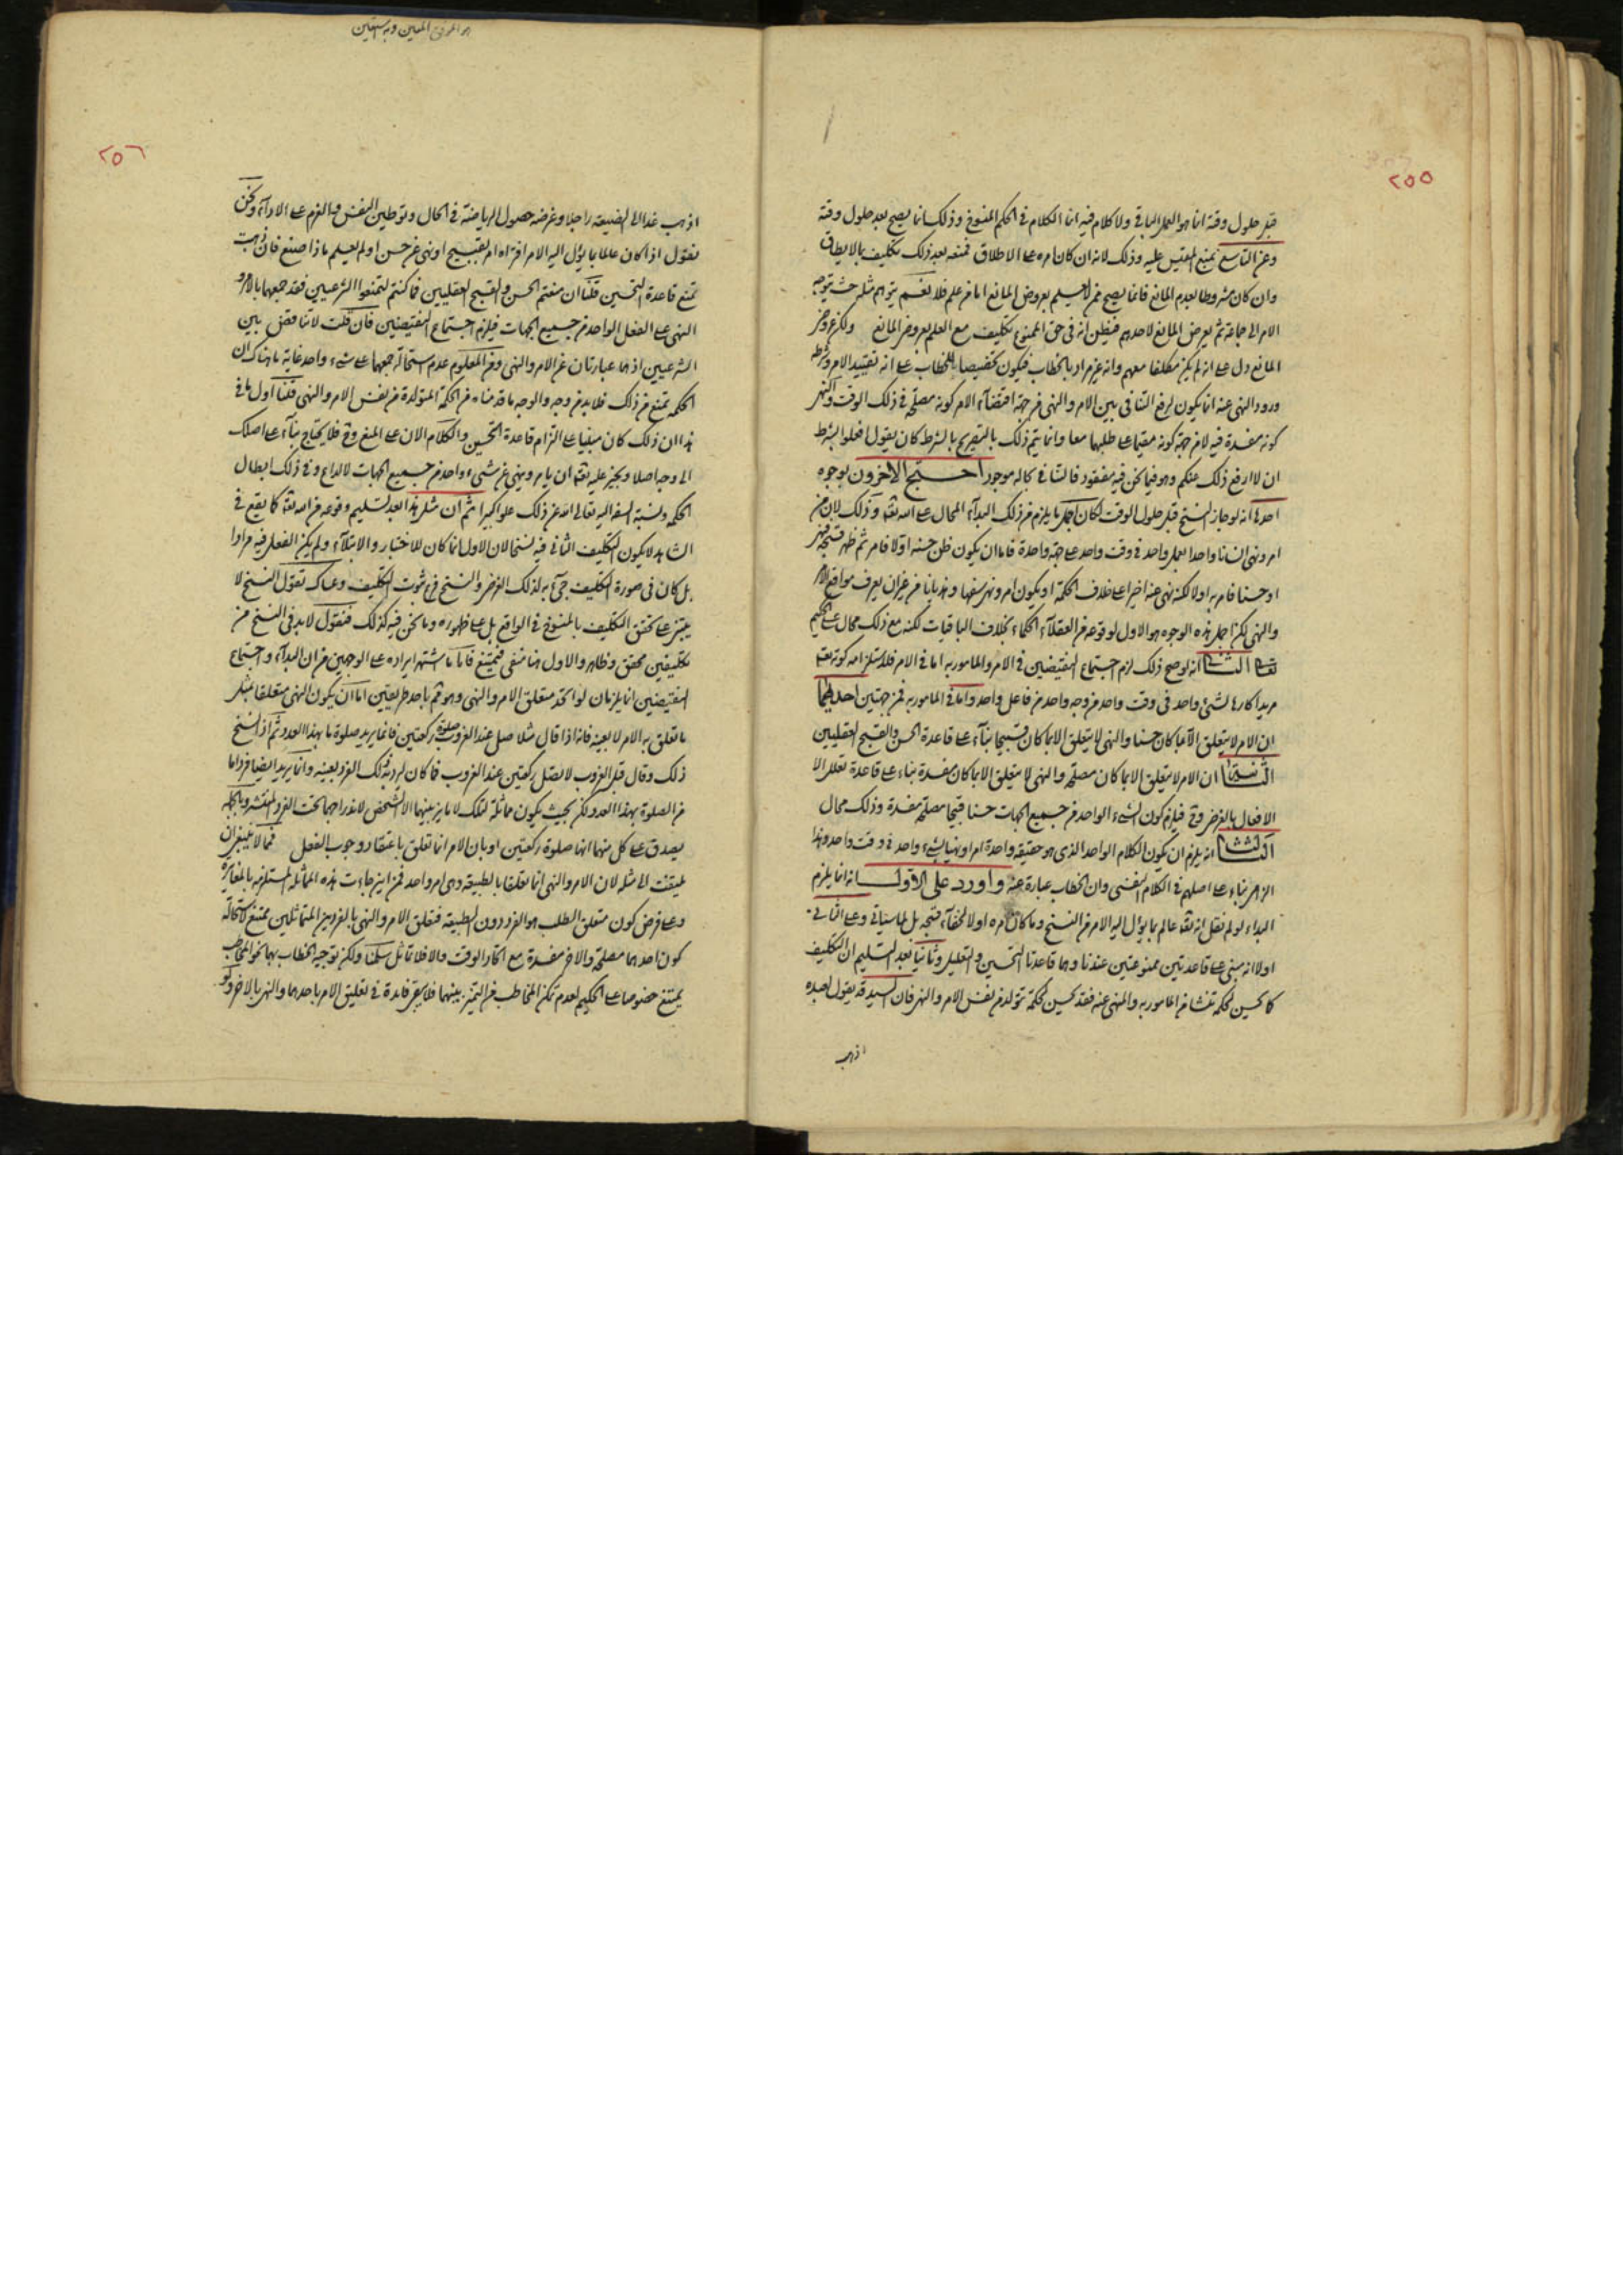 ٢٥٥
قبل حلول وقته انما هو العمل الباقي ولا كلام فيه انما الكلام في الحكم المنسوخ وذلك انما يصح بعد حلول وقته
وعن التاسع بمنع المقيس عليه وذلك لانه ان كان امره على الاطلاق فمنعه بعد ذلك تكليف بما لا يطاق
وان كان مشروطا بعدم المانع فانما يصح ممن لا يعلم بعروض المانع اما من علم فلا نعم يتراءى مثله حيث يتوجه
الامر الى جماعة ثم يعرض المانع لاحدهم فيظن انه في حق الممنوع تكليف مع العلم بعروض المانع ولكن عروض
المانع دل على انه لم يكن مكلفا معهم وانه غير مراد بالخطاب فيكون تخصيصا للخطاب على انه تقييد الامر وشرطه
ورود النهي عنه انما يكون لرفع التنافي بين الامر والنهي من جهة اقتضاء الامر كونه مصلحة في ذلك الوقت والنهي
كونه مفسدة فيه لا من جهة كونه مقيما على طلبهما معا وانما يتم ذلك بالتصريح بالشرط كان يقول افعلوا بشرط
ان لا ارفع ذلك عنكم وهو فيما نحن فيه مفقود فالتنافي بحاله موجود احتج الآخرون بوجوه
احدها انه لو جاز النسخ قبل حلول الوقت لكان اجل ما يلزم من ذلك البداء المحال على الله تعالى وذلك لان من
امر ونهى انسانا واحدا بعمل واحد في وقت واحد على جهة واحدة فاما ان يكون ظن حسنه اولا فامر ثم ظهر قبحه فنهى
او حسنا فامر به اولا لكنه نهى عنه اخيرا على خلاف الحكمة او يكون امر ونهى سفها وهذيانا من غير ان يعرف مواقع الامر
والنهي لكن اجل هذه الوجوه هو الاول لوقوعه من العقلاء الحكماء بخلاف الباقيات لكنه مع ذلك محال على الحكيم
تعالى الثاني انه لو صح ذلك لزم اجتماع النقيضين في الامر والمامور به اما في الامر فلاستلزامه كونه تعالى
مريدا كارها لشيء واحد في وقت واحد من وجه واحد من فاعل واحد واما في المامور به فمن جهتين احديهما
ان الامر لا يتعلق الا بما كان حسنا والنهي لا يتعلق الا بما كان قبيحا بناء على قاعدة الحسن والقبح العقليين
الثانية ان الامر لا يتعلق الا بما كان مصلحة والنهي لا يتعلق الا بما كان مفسدة بناء على قاعدة تعلل الا
الافعال بالغرض وح فيلزم كون الشيء الواحد من جميع الجهات حسنا قبيحا مصلحة مفسدة وذلك محال
الثالث انه يلزم ان يكون الكلام الواحد الذي هو حقيقة واحدة امرا ونهيا لشيء واحد في وقت واحد وهذا
الزامي بناء على اصلهم في الكلام النفسي وان الخطاب عبارة عنه واورد على الاول انه انما يلزم
البداء لو لم نقل انه تعالى عالم بما يؤل اليه الامر من النسخ وما كان امره اولا لخفاء قبحه بل لما سياتي وعلى الثاني
اولا انه مبني على قاعدتين ممنوعتين عندنا وهما قاعدتا التحسين والتعليل وثانيا بعد التسليم ان التكليف
كما يحسن لحكمة تنشا من المامور به والمنهي عنه فقد يحسن لحكمة تتولد من نفس الامر والنهي فان السيد قد يقول لعبده
اذهب
هو الموفق المعين وبه نستعين
٢٥٦
اذهب غدا الى الضيعة راجلا وغرضه حصول الرياضة في الحال وتوطين النفس والعزم على الاداء ونحن
نقول اذا كان عالما بما يؤل اليه الامر اقتراه امر بقبيح او نهى عن حسن او لم يعلم ماذا صنع فان ذهبت
تمنع قاعدة التحسين قلنا ان منعتم الحسن والقبح العقليين فما كنتم لتمنعوا الشرعيين فقد جمعهما بالامر و
النهي على الفعل الواحد من جميع الجهات فيلزم اجتماع النقيضين فان قلت لا تناقض بين
الشرعيين اذ هما عبارتان عن الامر والنهي ومن المعلوم عدم استحالة جمعهما على شيء واحد غاية ما هناك ان
الحكمة تمنع من ذلك فلا بد من وجه والوجه ما قدمناه من الحكمة المتولدة من نفس الامر والنهي قلنا اول ما في
هذا ان ذلك كان مبنيا على التزام قاعدة التحسين والكلام الان على المنع وح فلا يحتاج بناء على اصلك
الى وجه اصلا ويجوز عليه تعالى ان يامر وينهى عن شيء واحد من جميع الجهات لا لداع وفي ذلك ابطال
الحكمة ونسبة السفه اليه تعالى الله عن ذلك علوا كبيرا ثم ان مثل هذا بعد تسليم وقوعه من الله تعالى كما يقع في
الشاهد لا يكون التكليف الثاني فيه نسخا لان الاول انما كان للاختبار والابتلاء ولم يكن الفعل فيه مرادا
بل كان في صورة التكليف جيء به لذلك الغرض والنسخ فرع ثبوت التكليف وعساك تقول النسخ لا
يبتني على تحقق التكليف بالمنسوخ في الواقع بل على ظهوره وما نحن فيه كذلك فنقول لا بد في النسخ من
تكليفين محقق وظاهر والاول هنا منتفي فيمتنع فاما ما اشتهر ايراده على الوجهين من ان البداء واجتماع
النقيضين انما يلزمان لو اتحد متعلق الامر والنهي وهو ثم باحد طريقين اما ان يكون النهي متعلقا بمثل
ما تعلق به الامر لا بعينه فانه اذا قال مثلا صل عند الغروب صلوة ركعتين فانما يريد صلوة ما بهذا العدد ثم اذا نسخ
ذلك وقال قبل الغروب لا تصل ركعتين عند الغروب فما كان ليريد بذلك الفرد بعينه وانما يريد ايضا فردا ما
من الصلوة بهذا العدد ولكن بحيث يكون مماثلا لتلك لا مايز بينهما الا الشخص لاندراجهما تحت الفرد المنتشر وبالجملة
يصدق على كل منهما انها صلوة ركعتين او بان الامر انما تعلق باعتقاد وجوب الفعل فمما لا ينبغي ان
يلتفت الى مثله لان الامر والنهي انما تعلقا بالطبيعة وهي امر واحد فمن اين جاءت هذه المماثلة المستلزمة بالمغايرة
وعلى فرض كون متعلق الطلب هو الفرد دون الطبيعة فتعلق الامر والنهي بالفردين المتماثلين يمتنع لاستحالة
كون احدهما مصلحة والاخر مفسدة مع اتحاد الوقت والا فلا تماثل سلمنا ولكن توجيه الخطاب بهما نحو المخاطب
يمتنع خصوصا على الحكيم لعدم تمكن المخاطب من التميز بينهما فلا يبقى فائدة في تعليق الامر باحدهما والنهي بالاخر ولو